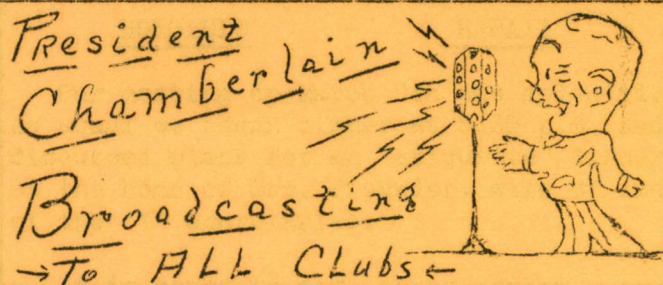 President
Chamberlain
Broadcasting
→To ALL Clubs←